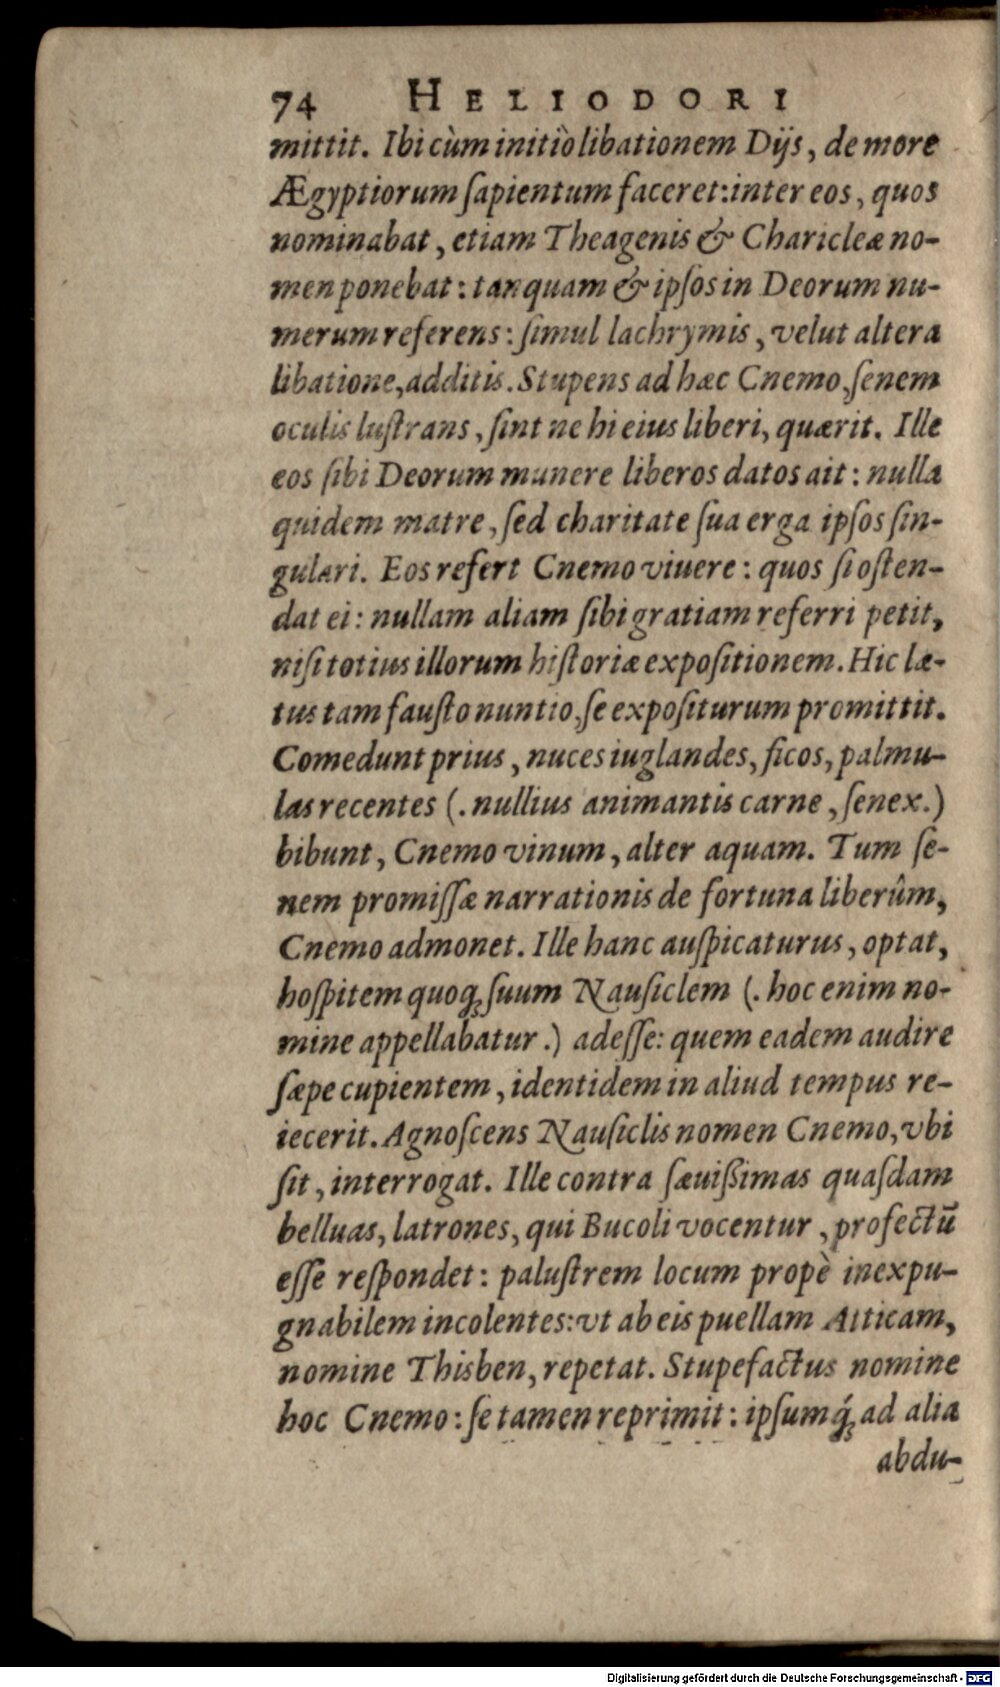 74 HELIODORI
mittit. Ibi cùm initiò libationem Dijs, de more
Ægyptiorum ſapientum faceret: inter eos, quos
nominabat, etiam Theagenis & Charicleæ no-
men ponebat: tanquam & ipſos in Deorum nu-
merum referens: ſimul lachrymis, velut altera
libatione, additis. Stupens ad hæc Cnemo, ſenem
oculis luſtrans, ſint ne hi eius liberi, quærit. Ille
eos ſibi Deorum munere liberos datos ait: nulla
quidem matre, ſed charitate ſua erga ipſos ſin-
gulari. Eos refert Cnemo viuere: quos ſi oſten-
dat ei: nullam aliam ſibi gratiam referri petit,
niſi totius illorum hiſtoriæ expoſitionem. Hic læ-
tus tam fauſto nuntio, ſe expoſiturum promittit.
Comedunt prius, nuces iuglandes, ficos, palmu-
las recentes (. nullius animantis carne, ſenex.)
bibunt, Cnemo vinum, alter aquam. Tum ſe-
nem promiſſæ narrationis de fortuna liberûm,
Cnemo admonet. Ille hanc auſpicaturus, optat,
hoſpitem quoqꝫ ſuum Nauſiclem (. hoc enim no-
mine appellabatur.) adeſſe: quem eadem audire
ſæpe cupientem, identidem in aliud tempus re-
iecerit. Agnoſcens Nauſiclis nomen Cnemo, vbi
ſit, interrogat. Ille contra ſæuißimas quaſdam
belluas, latrones, qui Bucoli vocentur, profectū
eſſe reſpondet: paluſtrem locum propè inexpu-
gnabilem incolentes: vt ab eis puellam Atticam,
nomine Thisben, repetat. Stupefactus nomine
hoc Cnemo: ſe tamen reprimit: ipſumq́ꝫ ad alia
abdu-
Digitalisierung gefördert durch die Deutsche Forschungsgemeinschaft - DFG